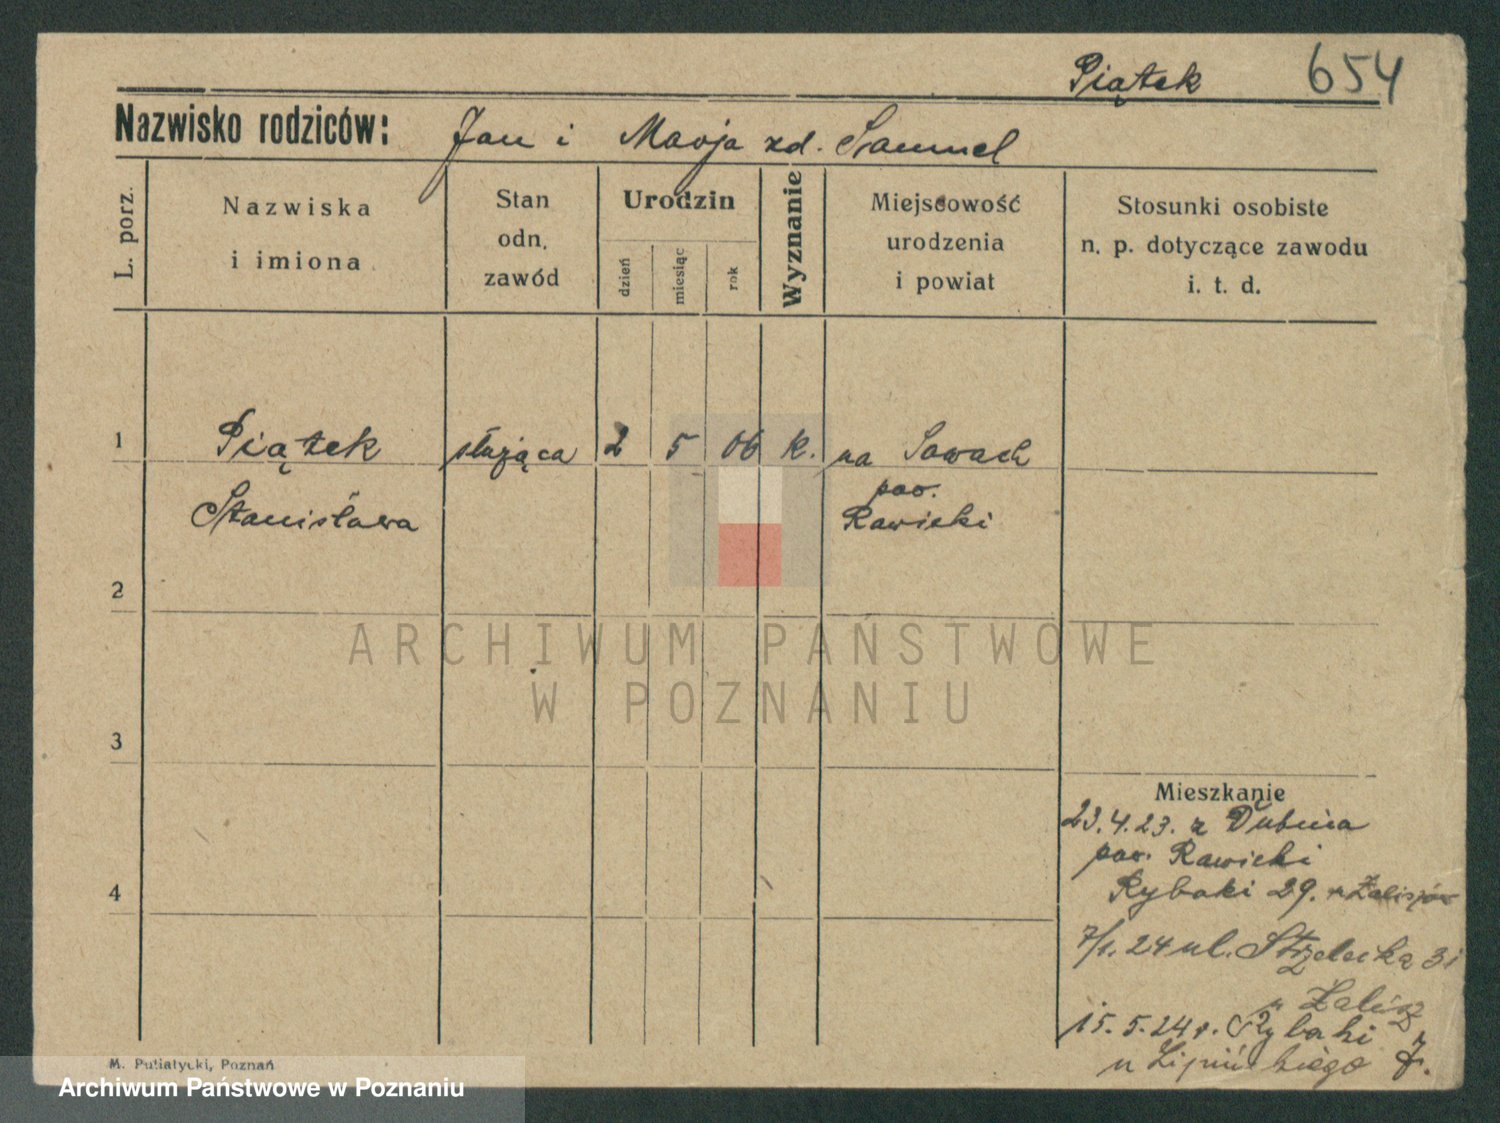 Piątek 654
Nazwisko rodziców: Jan i Marja zd. Samuel
L. porz.
Nazwiska
i imiona
Stan
odn.
zawód
Urodzin
dzień
miesiąc
rok
Wyznanie
Miejscowość
urodzenia
i powiat
Stosunki osobiste
n. p. dotyczące zawodu
i. t. d.
1 Piątek służąca 2 5 06 k. na Sowach
pow.
Stanisława Rawicki
2
3
4
Mieszkanie
23.4.23. z Dubina
pow. Rawicki
Rybaki 29.
7/1. 24 ul. Strzelecka 31
u
15.5.24 r. Rybaki 7.
u Lipińskiego
M. Putiatycki, Poznań
ARCHIWUM PAŃSTWOWE
W POZNANIU
Archiwum Państwowe w Poznaniu